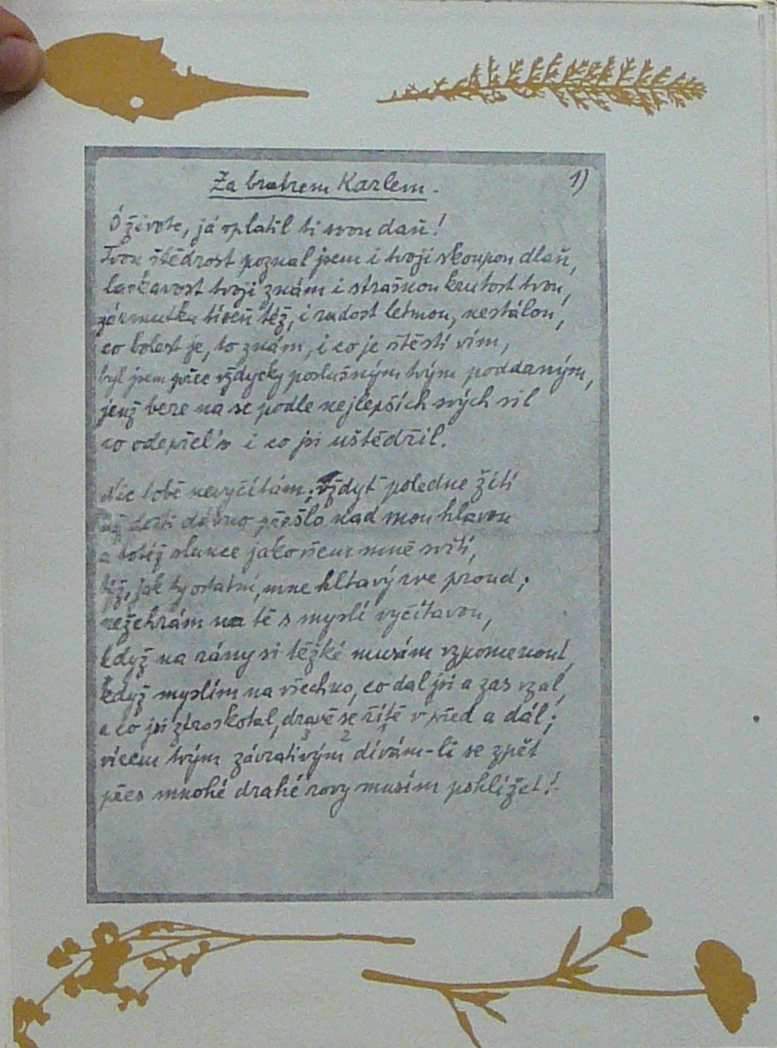 Za bratrem Karlem.
1)
Ó živote, já oplatil ti svou daň!
Tvou štědrost poznal jsem i tvoji skoupou dlaň,
laskavost tvoji znám i strašnou krutost tvou,
zármutku tíseň též, i radost letmou, nestálou,
co bolest je, to znám, i co je štěstí vím,
byl jsem přece vždycky poslušným tvým poddaným,
jenž bere na se podle nejlepších svých sil
co odepřel's i co jsi uštědřil.
Nic tobě nevyčítám; vždyť poledne žití
už dosti dávno přešlo nad mou hlavou
a totéž slunce jako všem mně svítí,
též, jak ty ostatní, mne hltavý rve proud;
nežehrám na tě s myslí vyčítavou,
když na rány si těžké musím vzpomenout,
když myslím na všechno, co dal jsi a zas vzal,
a co jsi ztroskotal, dravě se řítě v před a dál;
vírem tvým závrativým dívám-li se zpět
3 2 1
přes mnohé drahé rovy musím pohlížet!